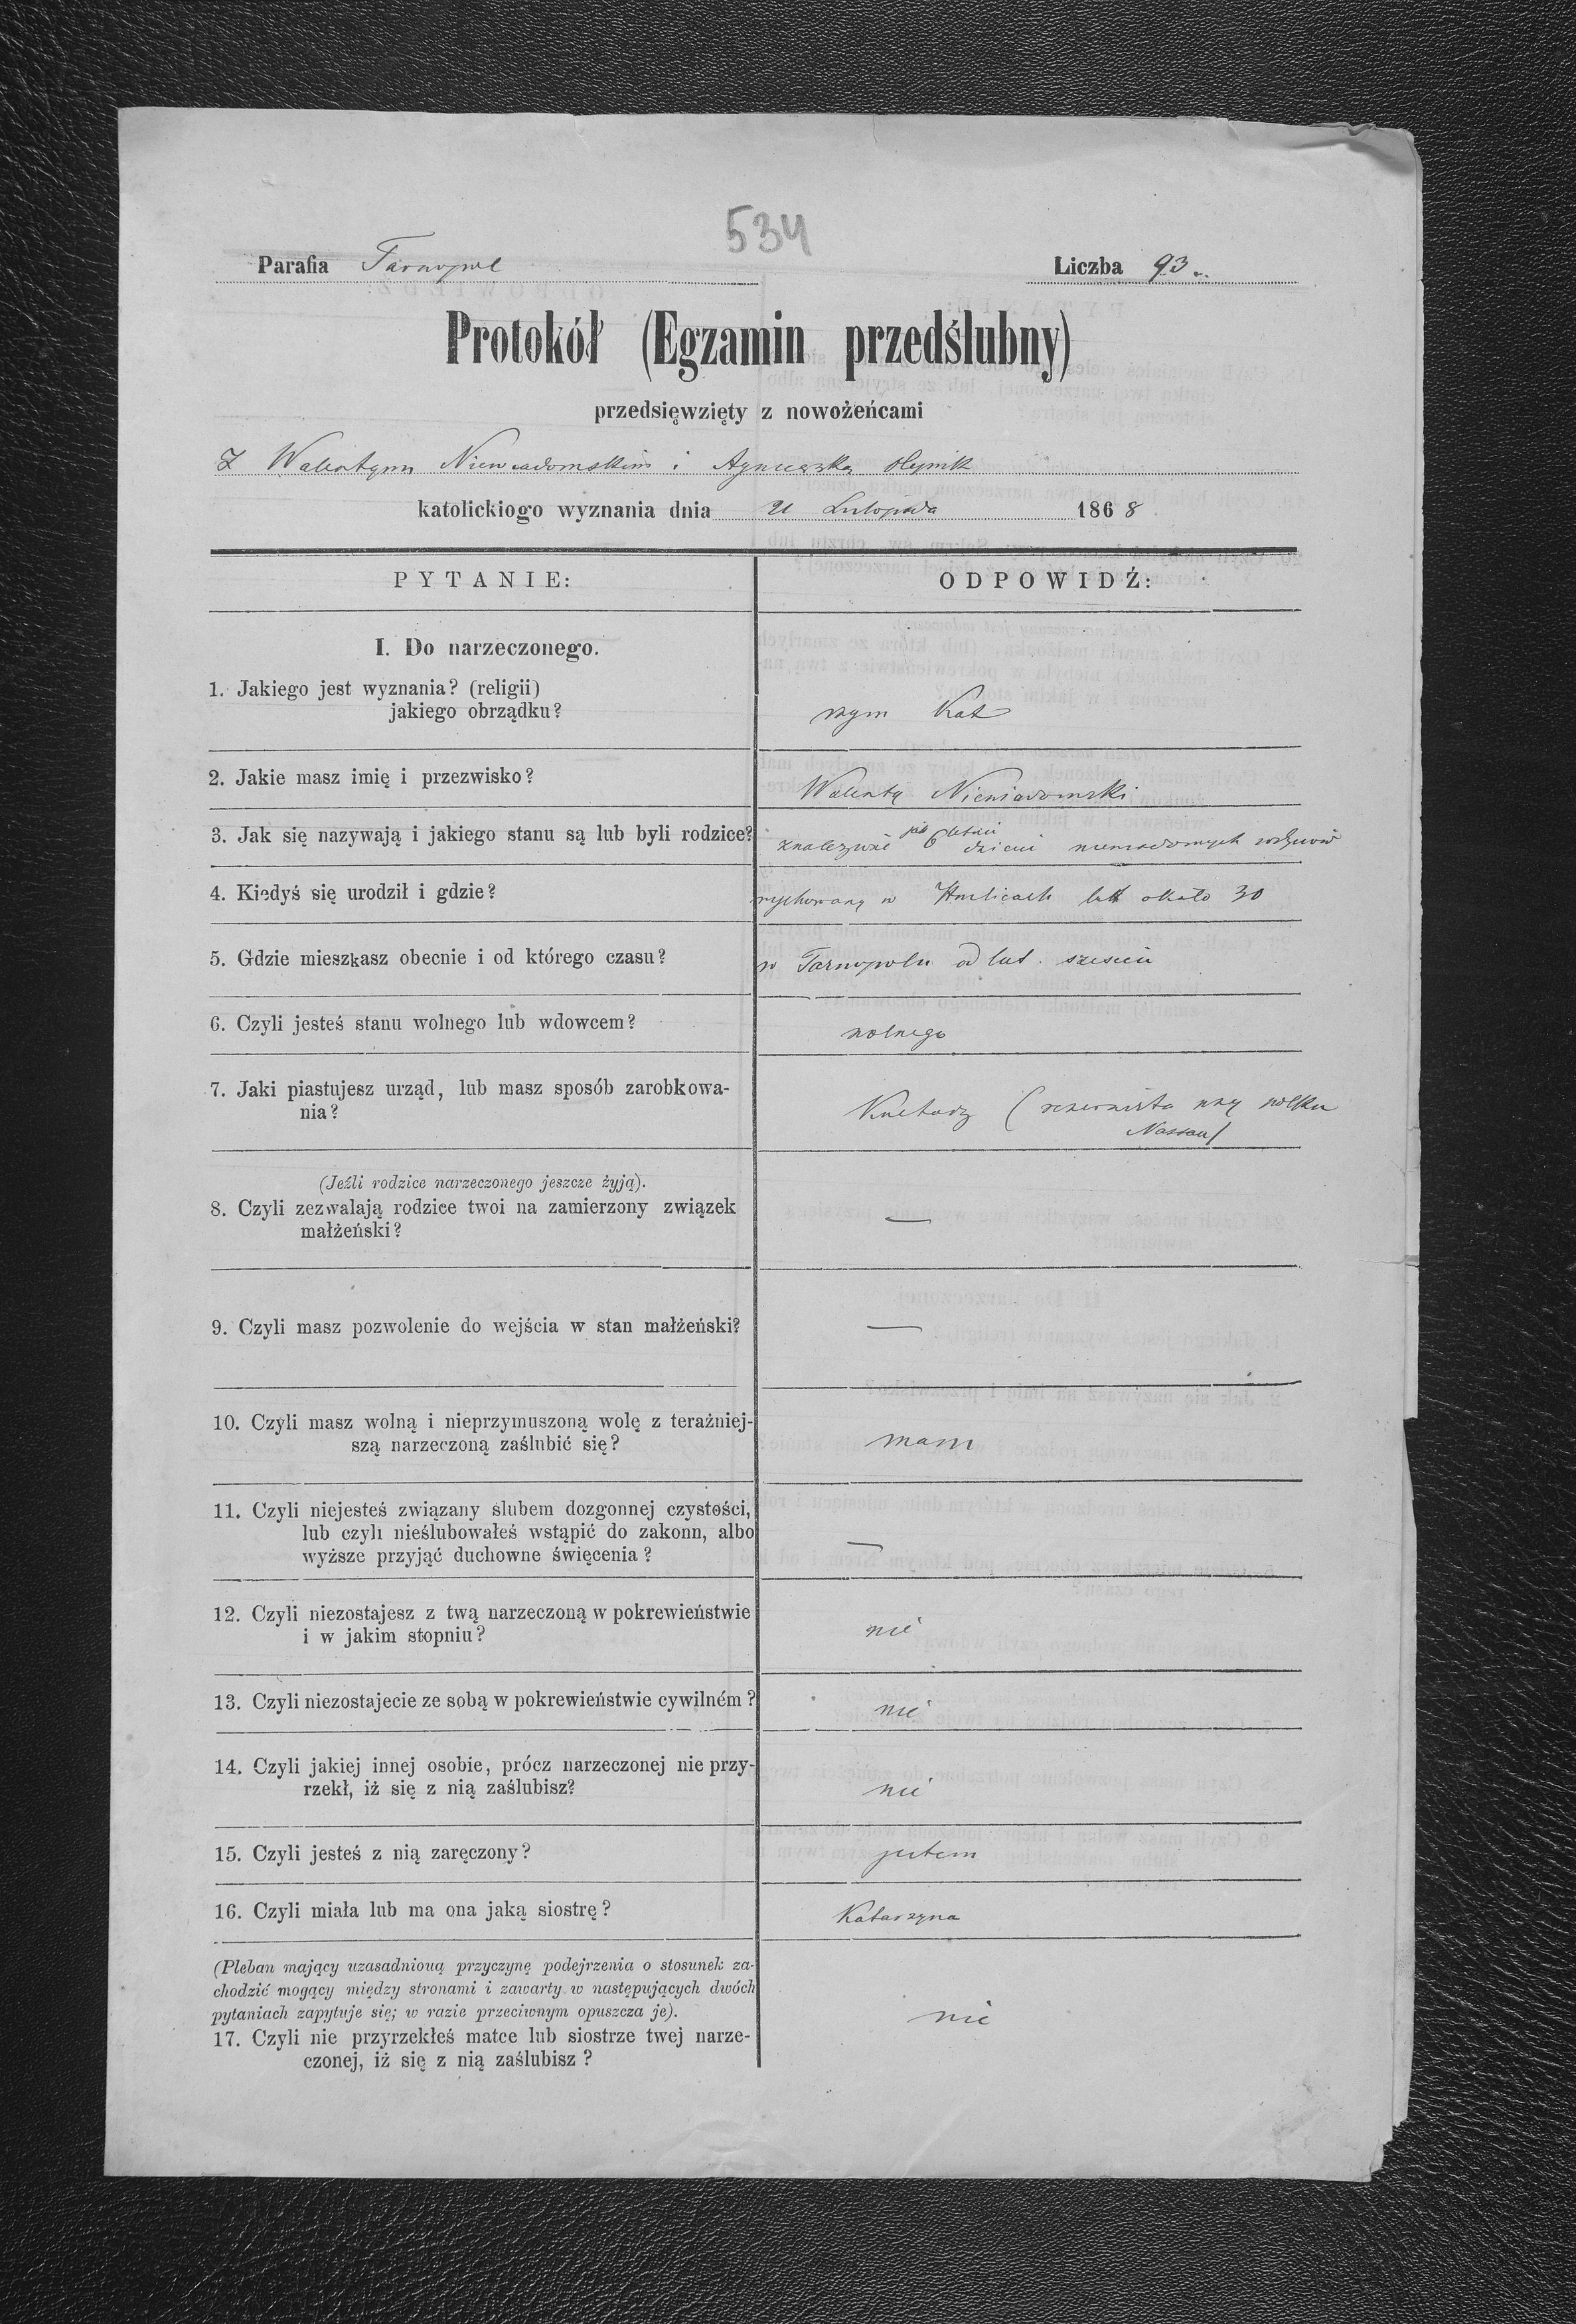 534
Parafia Tarnopol Liczba 93
Protokół (Egzamin przedślubny)
przedsięwzięty z nowożeńcami
Z Walentym Niewiadomskim i Agnieszką Olejnik
katolickiogo wyznania dnia 21 Listopada 1868
PYTANIE: ODPOWIDŹ:
I. Do narzeczonego.
1. Jakiego jest wyznania? (religii)
jakiego obrządku? rzym Kat
2. Jakie masz imię i przezwisko? Walenty Niewiadomski
3. Jak się nazywają i jakiego stanu są lub byli rodzice? znalezione jak 6 letnie dziecię niewiadomych rodziców
4. Kiedyś się urodził i gdzie? wychowany w lat około 30
5. Gdzie mieszkasz obecnie i od którego czasu? w Tarnopolu od lat sześciu
6. Czyli jesteś stanu wolnego lub wdowcem? wolnego
7. Jaki piastujesz urząd, lub masz sposób zarobkowa-
nia? Kucharz (rezerwista przy półku
Nassau)
(Jeźli rodzice narzeczonego jeszcze żyją).
8. Czyli zezwalają rodzice twoi na zamierzony związek
małżeński? —
9. Czyli masz pozwolenie do wejścia w stan małżeński? —
10. Czyli masz wolną i nieprzymuszoną wolę z teraźniej-
szą narzeczoną zaślubić się? mam
11. Czyli niejesteś związany ślubem dozgonnej czystości,
lub czyli nieślubowałeś wstąpić do zakonn, albo
wyższe przyjąć duchowne święcenia? —
12. Czyli niezostajesz z twą narzeczoną w pokrewieństwie
i w jakim stopniu? nie
13. Czyli niezostajecie ze sobą w pokrewieństwie cywilném? nie
14. Czyli jakiej innej osobie, prócz narzeczonej nie przy-
rzekł, iż się z nią zaślubisz? nie
15. Czyli jesteś z nią zaręczony? jestem
16. Czyli miała lub ma ona jaką siostrę? Katarzyna
(Pleban mający uzasadnioną przyczynę podejrzenia o stosunek za-
chodzić mogący między stronami i zawarty w następujących dwóch
pytaniach zapytuje się; w razie przeciwnym opuszcza je).
17. Czyli nie przyrzekłeś matce lub siostrze twej narze- nie
czonej, iż się z nią zaślubisz?